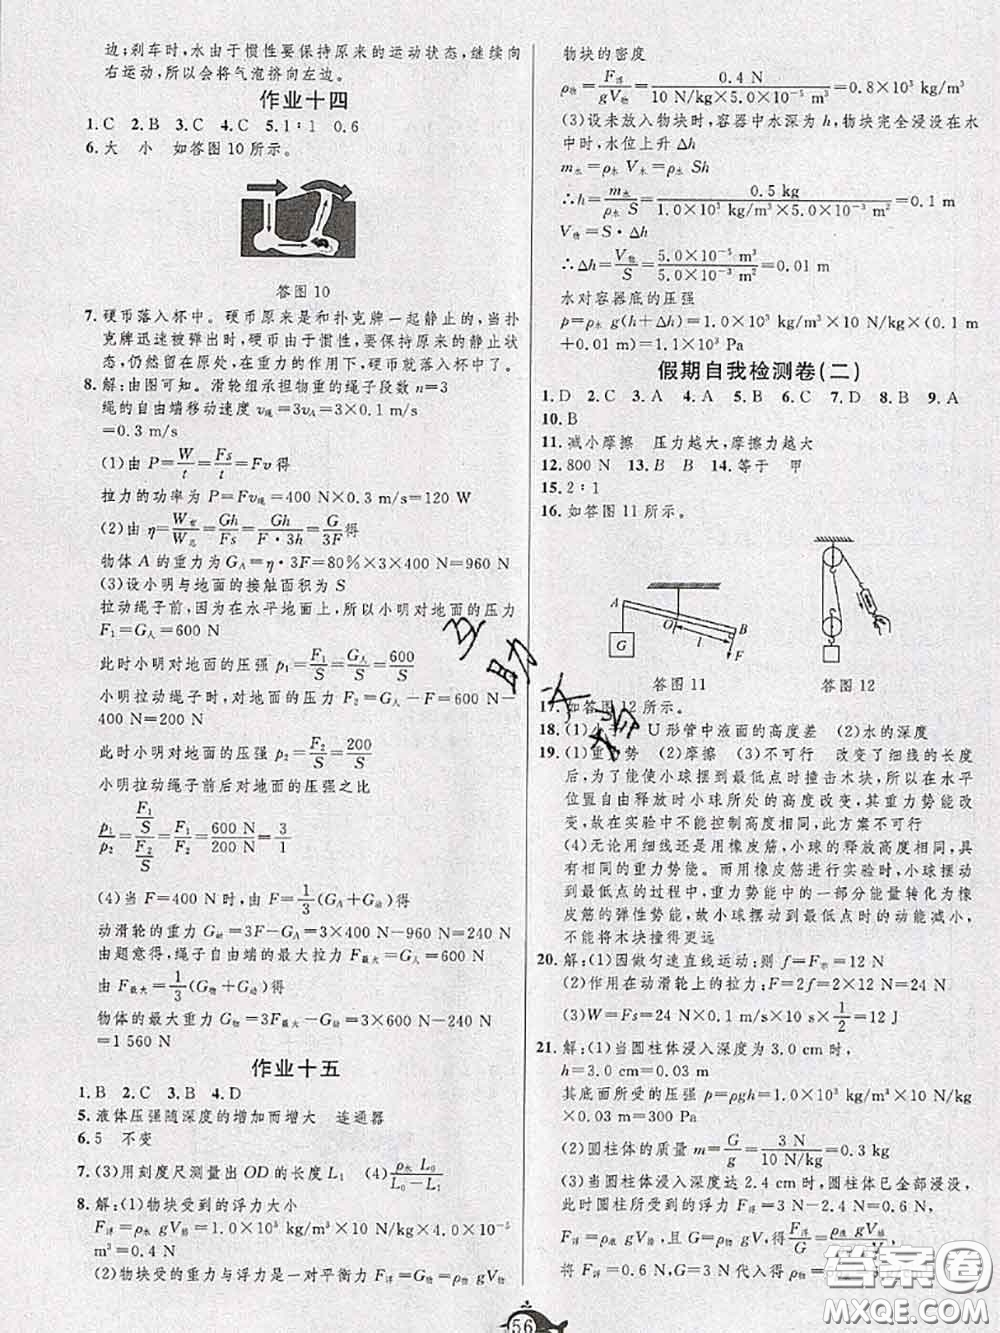 边;刹车时,水由于惯性要保持原来的运动状态,继续向
右运动,所以会将气泡挤向左边。
作业十四
1.C 2.B 3.C 4.C 5.1∶1 0.6
6.大 小 如答图10所示。
答图10
7.硬币落入杯中。硬币原来是和扑克牌一起静止的,当扑
克牌迅速被弹出时,硬币由于惯性,要保持原来的静止状
态,仍然留在原处,在重力的作用下,硬币就落入杯中了。
8.解:由图可知。滑轮组承担物重的绳子段数 n=3
绳的自由端移动速度 v绳=3vA=3×0.1 m/s
=0.3 m/s
(1)由 P=W/t=Fs/t=Fv得
拉力的功率为 P=Fv绳=400 N×0.3 m/s=120 W
(2)由 η=W有/W总=Gh/Fs=Gh/F·3h=G/3F得
物体 A 的重力为 GA=η·3F=80%×3×400 N=960 N
(3)设小明与地面的接触面积为 S
拉动绳子前,因为在水平地面上,所以小明对地面的压力
F1=G人=600 N
此时小明对地面的压强 p1=F1/S=G人/S=600/S
小明拉动绳子时,对地面的压力 F2=G人-F=600 N-
400 N=200 N
此时小明对地面的压强 p2=F2/S=200/S
小明拉动绳子前、后对地面的压强之比
p1/p2=(F1/S)/(F2/S)=F1/F2=600 N/200 N=3/1
(4)当 F=400 N时,由 F=1/3(GA+G动)得
动滑轮的重力 G动=3F-GA=3×400 N-960 N=240 N
由题意得,绳子自由端的最大拉力 F最大=G人=600 N
由 F最大=1/3(G物+G动)得
物体的最大重力 G物=3F最大-G动=3×600 N-240 N=
1 560 N
作业十五
1.B 2.C 3.B 4.D
5.液体压强随深度的增加而增大 连通器
6.5 不变
7.(3)用刻度尺测量出 OD 的长度 L1 (4)ρ水 L0/L0-L1
8.解:(1)物块受到的浮力大小
F浮=ρ水 gV排=1.0×10³ kg/m³×10 N/kg×4.0×10⁻⁵
m³=0.4 N
(2)物块受的重力与浮力是一对平衡力 F浮=G物=ρ物 gV物
物块的密度
ρ物=F浮/gV物=0.4 N/10 N/kg×5.0×10⁻⁵ m³=0.8×10³ kg/m³
(3)设未放入物块时,容器中水深为 h,物块完全浸没在水
中时,水位上升 Δh
m水=ρ水 V水=ρ水 Sh
∴h=m水/ρ水 S=0.5 kg/1.0×10³ kg/m³×5.0×10⁻³ m²=0.1 m
V物=S·Δh
∴Δh=V物/S=5.0×10⁻⁵ m³/5.0×10⁻³ m²=0.01 m
水对容器底的压强
p=ρ水 g(h+Δh)=1.0×10³ kg/m³×10 N/kg×(0.1 m
+0.01 m)=1.1×10³ Pa
假期自我检测卷(二)
1.D 2.C 3.A 4.A 5.B 6.C 7.D 8.B 9.A
10.B
11.减小摩擦 压力越大,摩擦力越大
12.800 N 13.B B 14.等于 甲
15.2∶1
16.如答图11所示。
A
G
O
l
B
F
答图11 答图12
17.如答图12所示。
18.(1) U形管中液面的高度差 (2)水的深度
19.(1)重 势 (2)摩擦 (3)不可行 改变了细线的长度
后,为了能使小球摆到最低点时撞击木块,所以在水平
位置自由释放时小球所处的高度改变,其重力势能改
变,故在实验中不能控制高度相同,此方案不可行
(4)无论用细线还是用橡皮筋,小球的释放高度相同,具
有相同的重力势能。而用橡皮筋进行实验时,小球摆动
到最低点的过程中,重力势能中的一部分能量转化为橡
皮筋的弹性势能,故小球摆动到最低点时的动能减小,
不能将木块撞得更远
20.解:(1)因做匀速直线运动;则 f=F示=12 N
(2)作用在动滑轮上的拉力;F=2f=2×12 N=24 N
(3)W=Fs=24 N×0.1 m/s×10 s×1/2=12 J
21.解:(1)当圆柱体浸入深度为3.0 cm时,
h=3.0 cm=0.03 m
其底面所受的压强 p=ρgh=1.0×10³ kg/m³×10 N/kg
×0.03 m=300 Pa
(2)圆柱体的质量 m=G/g=3 N/10 N/kg=0.3 kg
(3)当圆柱体浸入深度达2.4 cm时,圆柱体已全部浸没,
此时圆柱所受的浮力 F浮=3 N-2.4 N=0.6 N,
F浮=ρ液 gV排,且 G=ρ物 gV,得F浮/G=ρ液 gV排/ρ物 gV,
将 F浮=0.6 N,G=3 N代入得
56
互助文档
答案圈
MXQE.COM